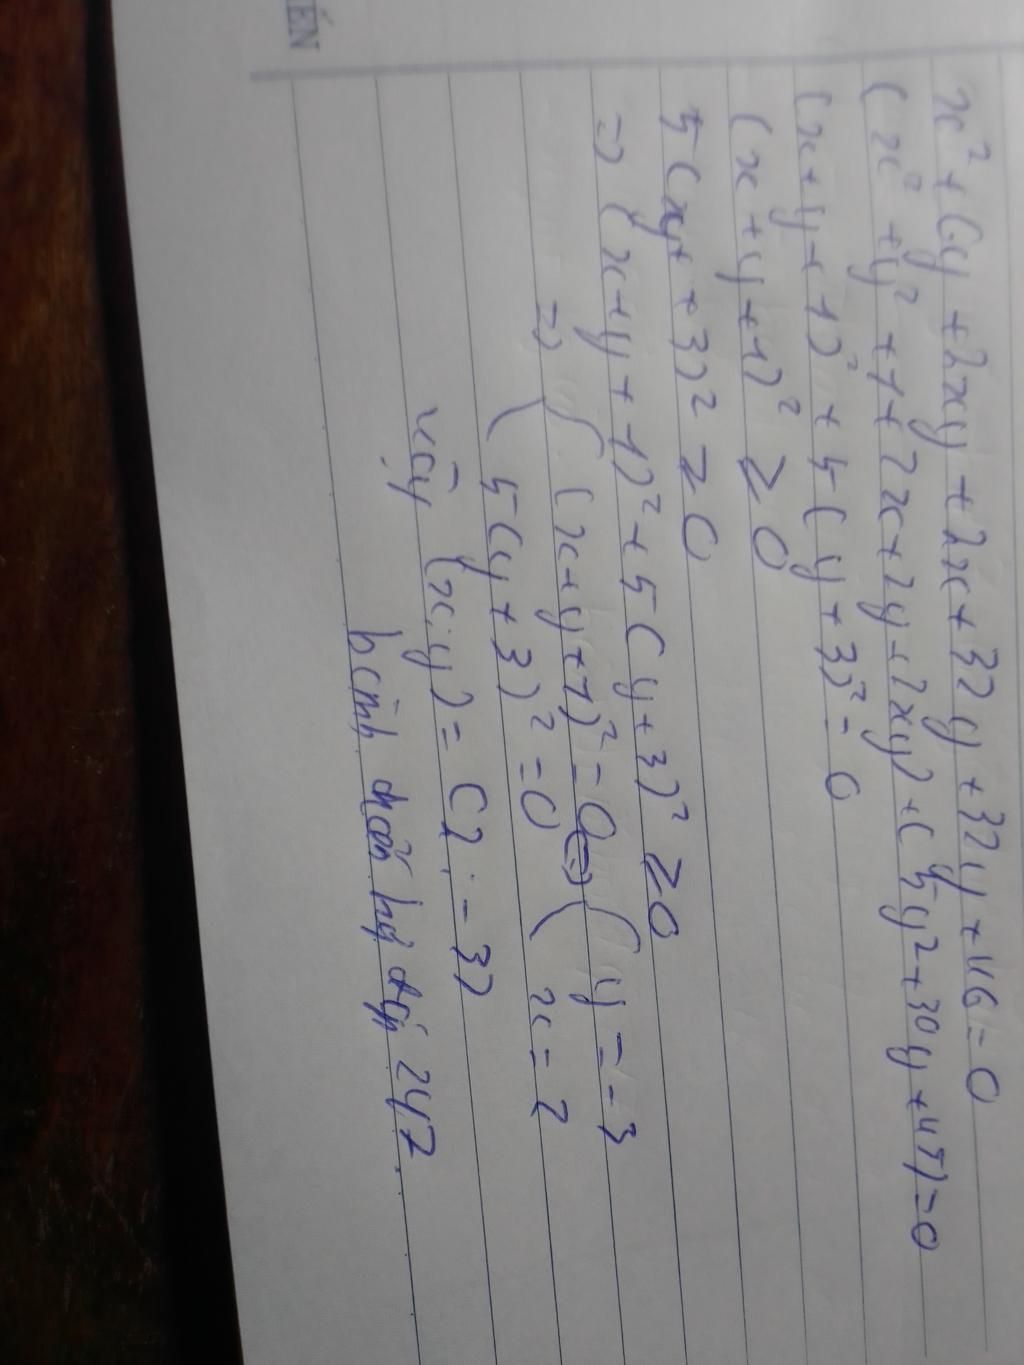 ẾN
x² + 6y + 2xy + 2x + 32y + 32y + 46 = 0
(x² + y² + 1 + 2x + 2y + 2xy) + (5y² + 30y + 45) = 0
(x + y + 1)² + 5(y + 3)² = 0
(x + y + 1)² ≥ 0
5(xy + 3)² ≥ 0
=> (x + y + 1)² + 5(y + 3)² ≥ 0
=> { (x + y + 1)² = 0 <=> { y = -3
5(y + 3)² = 0 x = 2
vậy (x; y) = (2; -3)
hỏi đáp 247